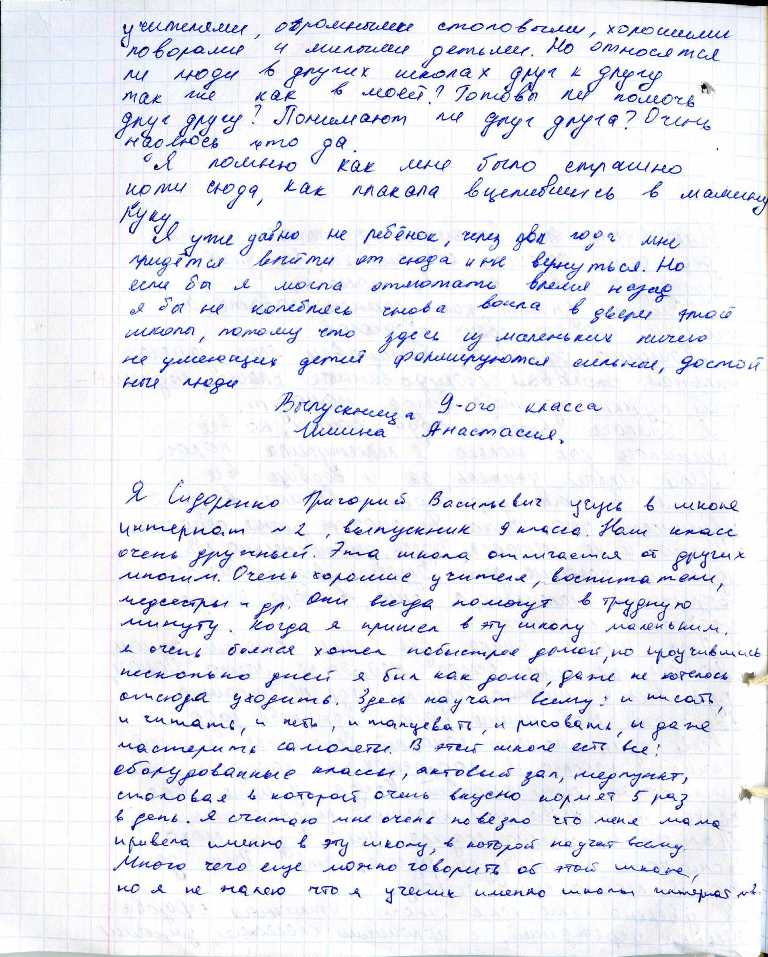 учителями, огромными столовыми, хорошими
поварами и милыми детьми. Но относятся
ли люди в других школах друг к другу
так же как в моей? Готовы ли помочь
друг другу? Понимают ли друг друга? Очень
надеюсь что да.
Я помню как мне было страшно
идти сюда, как плакала вцепившись в мамину
руку.
Я уже давно не ребёнок, через два года мне
придётся выйти от сюда и не вернуться. Но
если бы я могла отмотать время назад
я бы не колеблясь снова вошла в двери этой
школы, потому что здесь из маленьких ничего
не умеющих детей формируются сильные, достой
ные люди
Выпускница 9-ого класса
Анастасия.
Я Сидоренко Григорий Васильевич учусь в школе
интернат №2, выпускник 9 класса. Наш класс
очень дружный. Эта школа отличается от других
многим. Очень хорошие учителя, воспитатели,
медсестры и др. Они всегда помогут в трудную
минуту. Когда я пришел в эту школу маленьким.
я очень боялся хотел побыстрее домой, но проучившись
несколько дней я был как дома, даже не хотелось
отсюда уходить. Здесь научат всему: и писать,
и читать, и петь, и танцевать, и рисовать, и даже
мастерить самолеты. В этой школе есть все:
оборудованные классы, актовый зал, медпункт,
столовая в которой очень вкусно кормят 5 раз
в день. Я считаю мне очень повезло что меня мама
привела именно в эту школу, в которой научат всему.
Много чего еще можно говорить об этой школе,
но я не жалею что я ученик именно школы интернат №2.